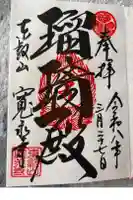 奉拝
令和八年
三月二十七日
瑠璃殿
東叡山
寛永寺